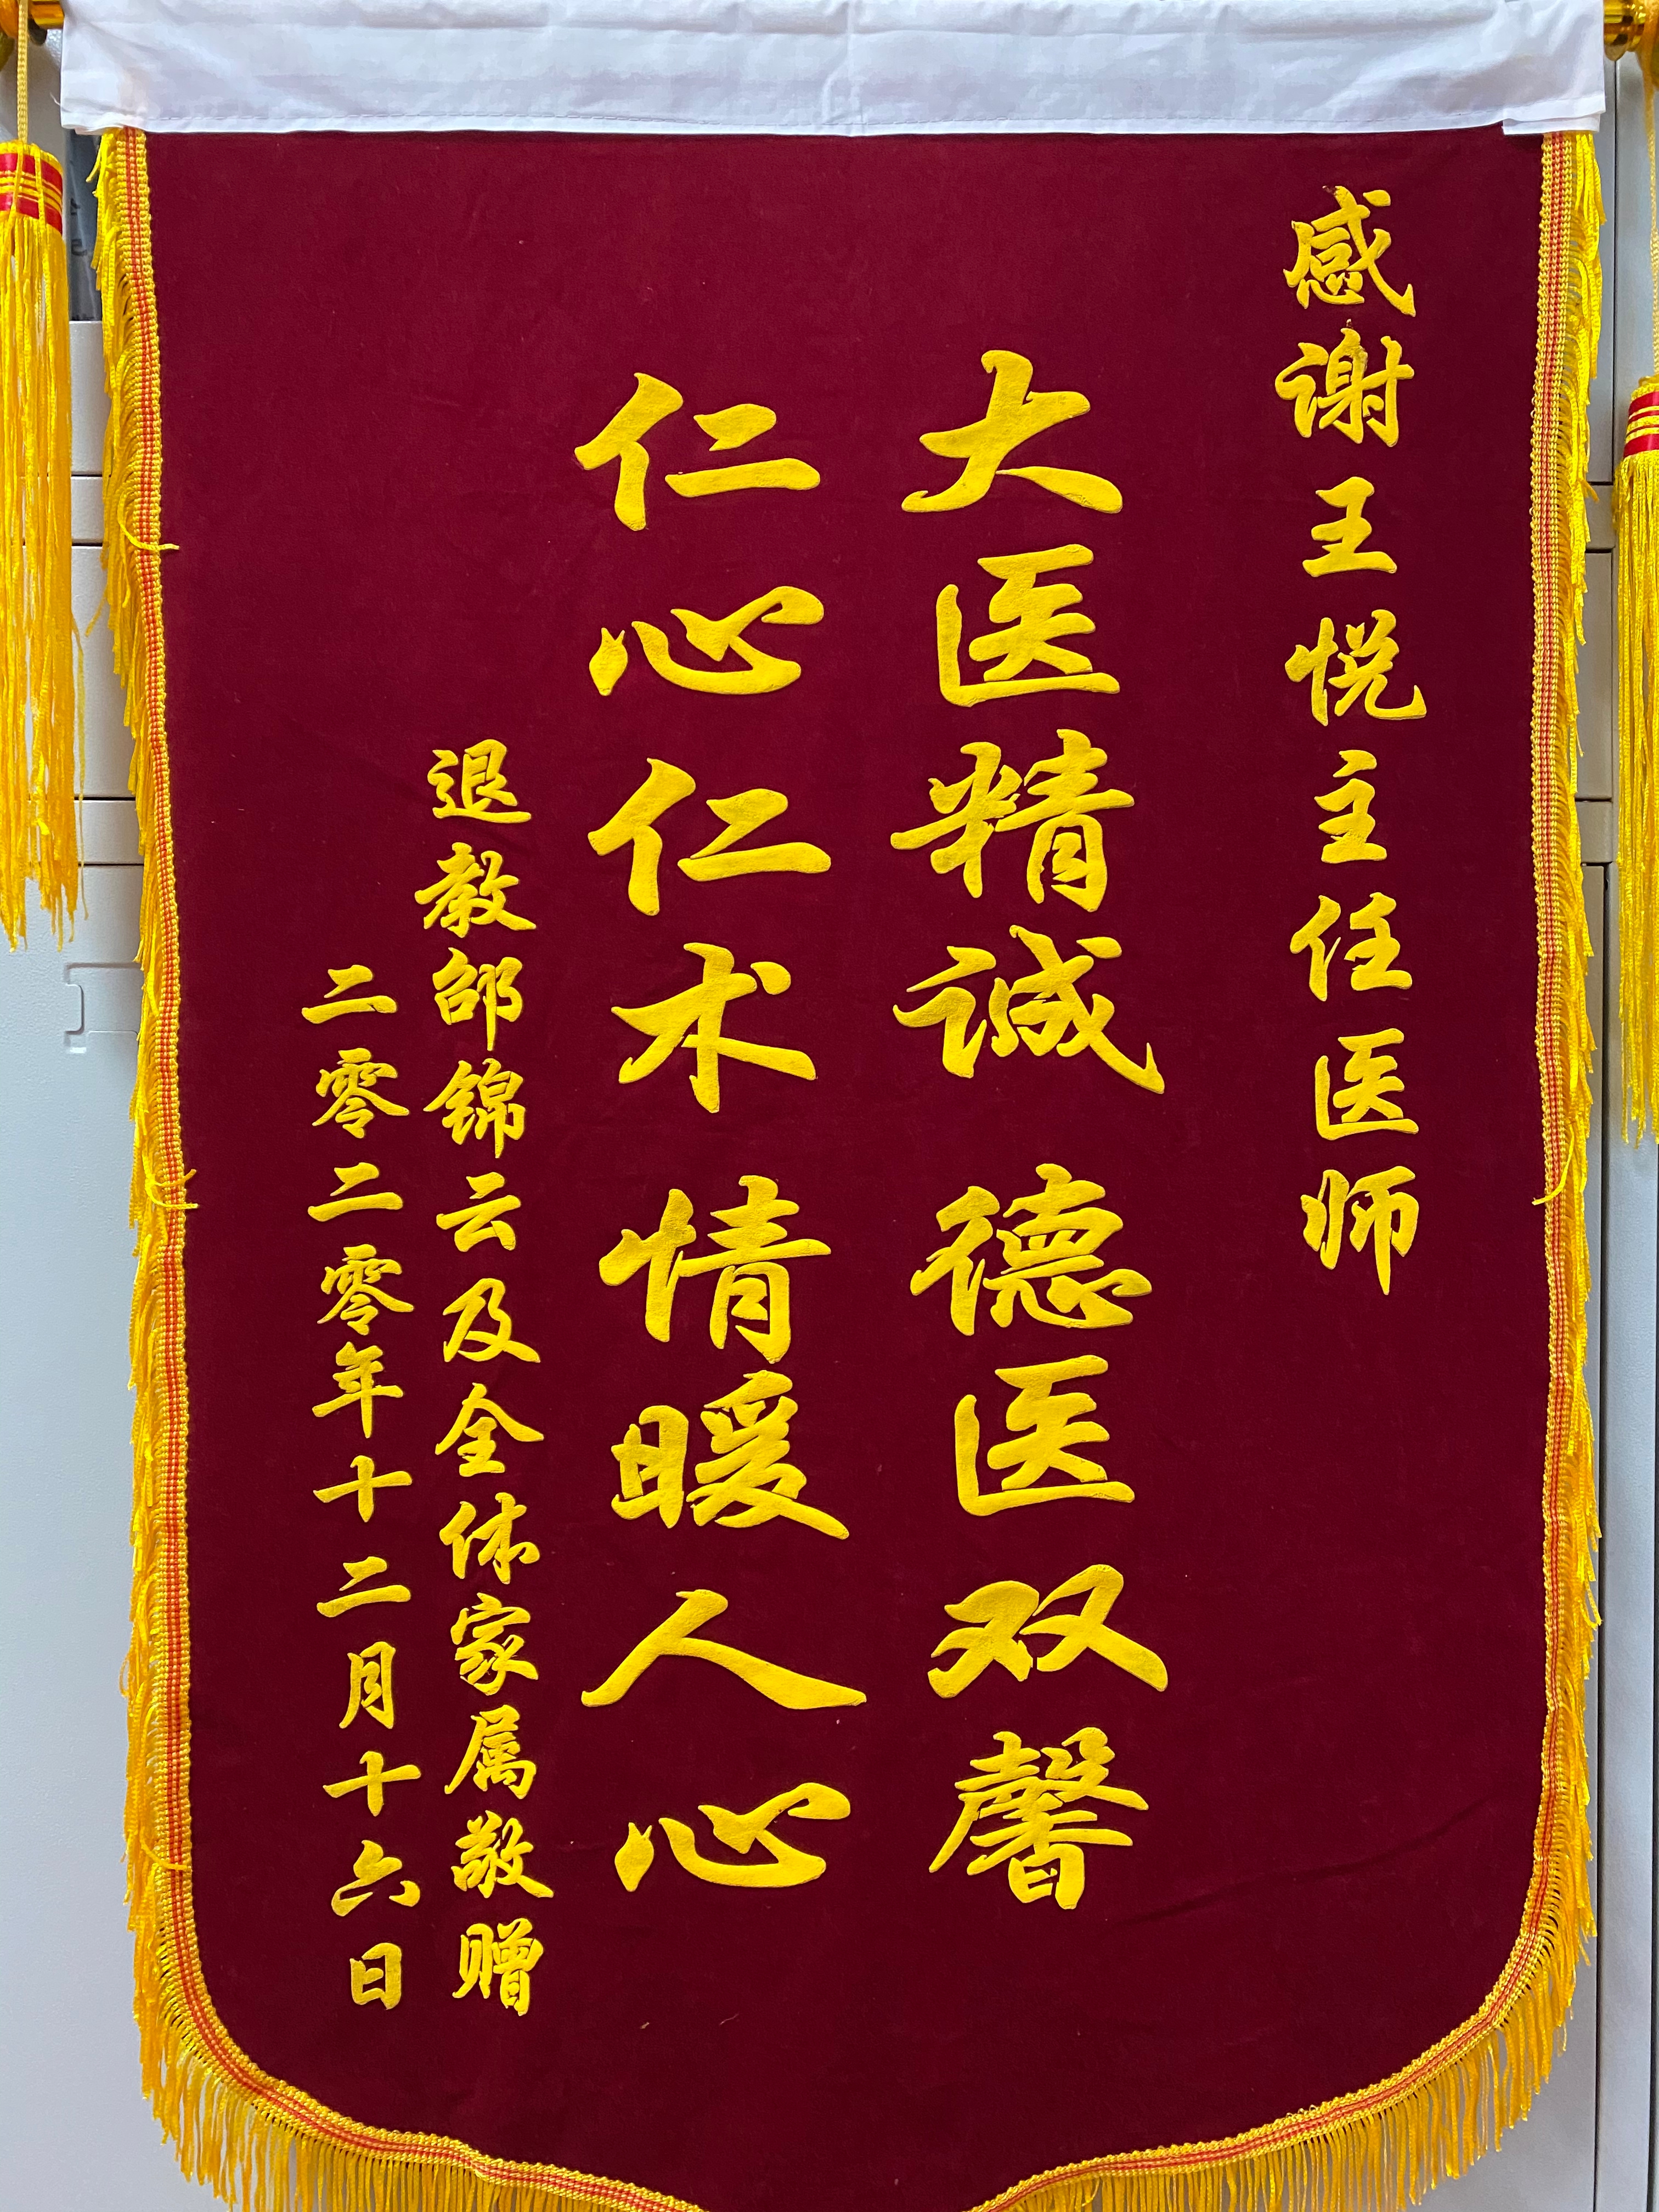 感谢王悦主任医师
大医精诚 德医双馨
仁心仁术 情暖人心
退教邰锦云及全体家属敬赠
二零二零年十二月十六日